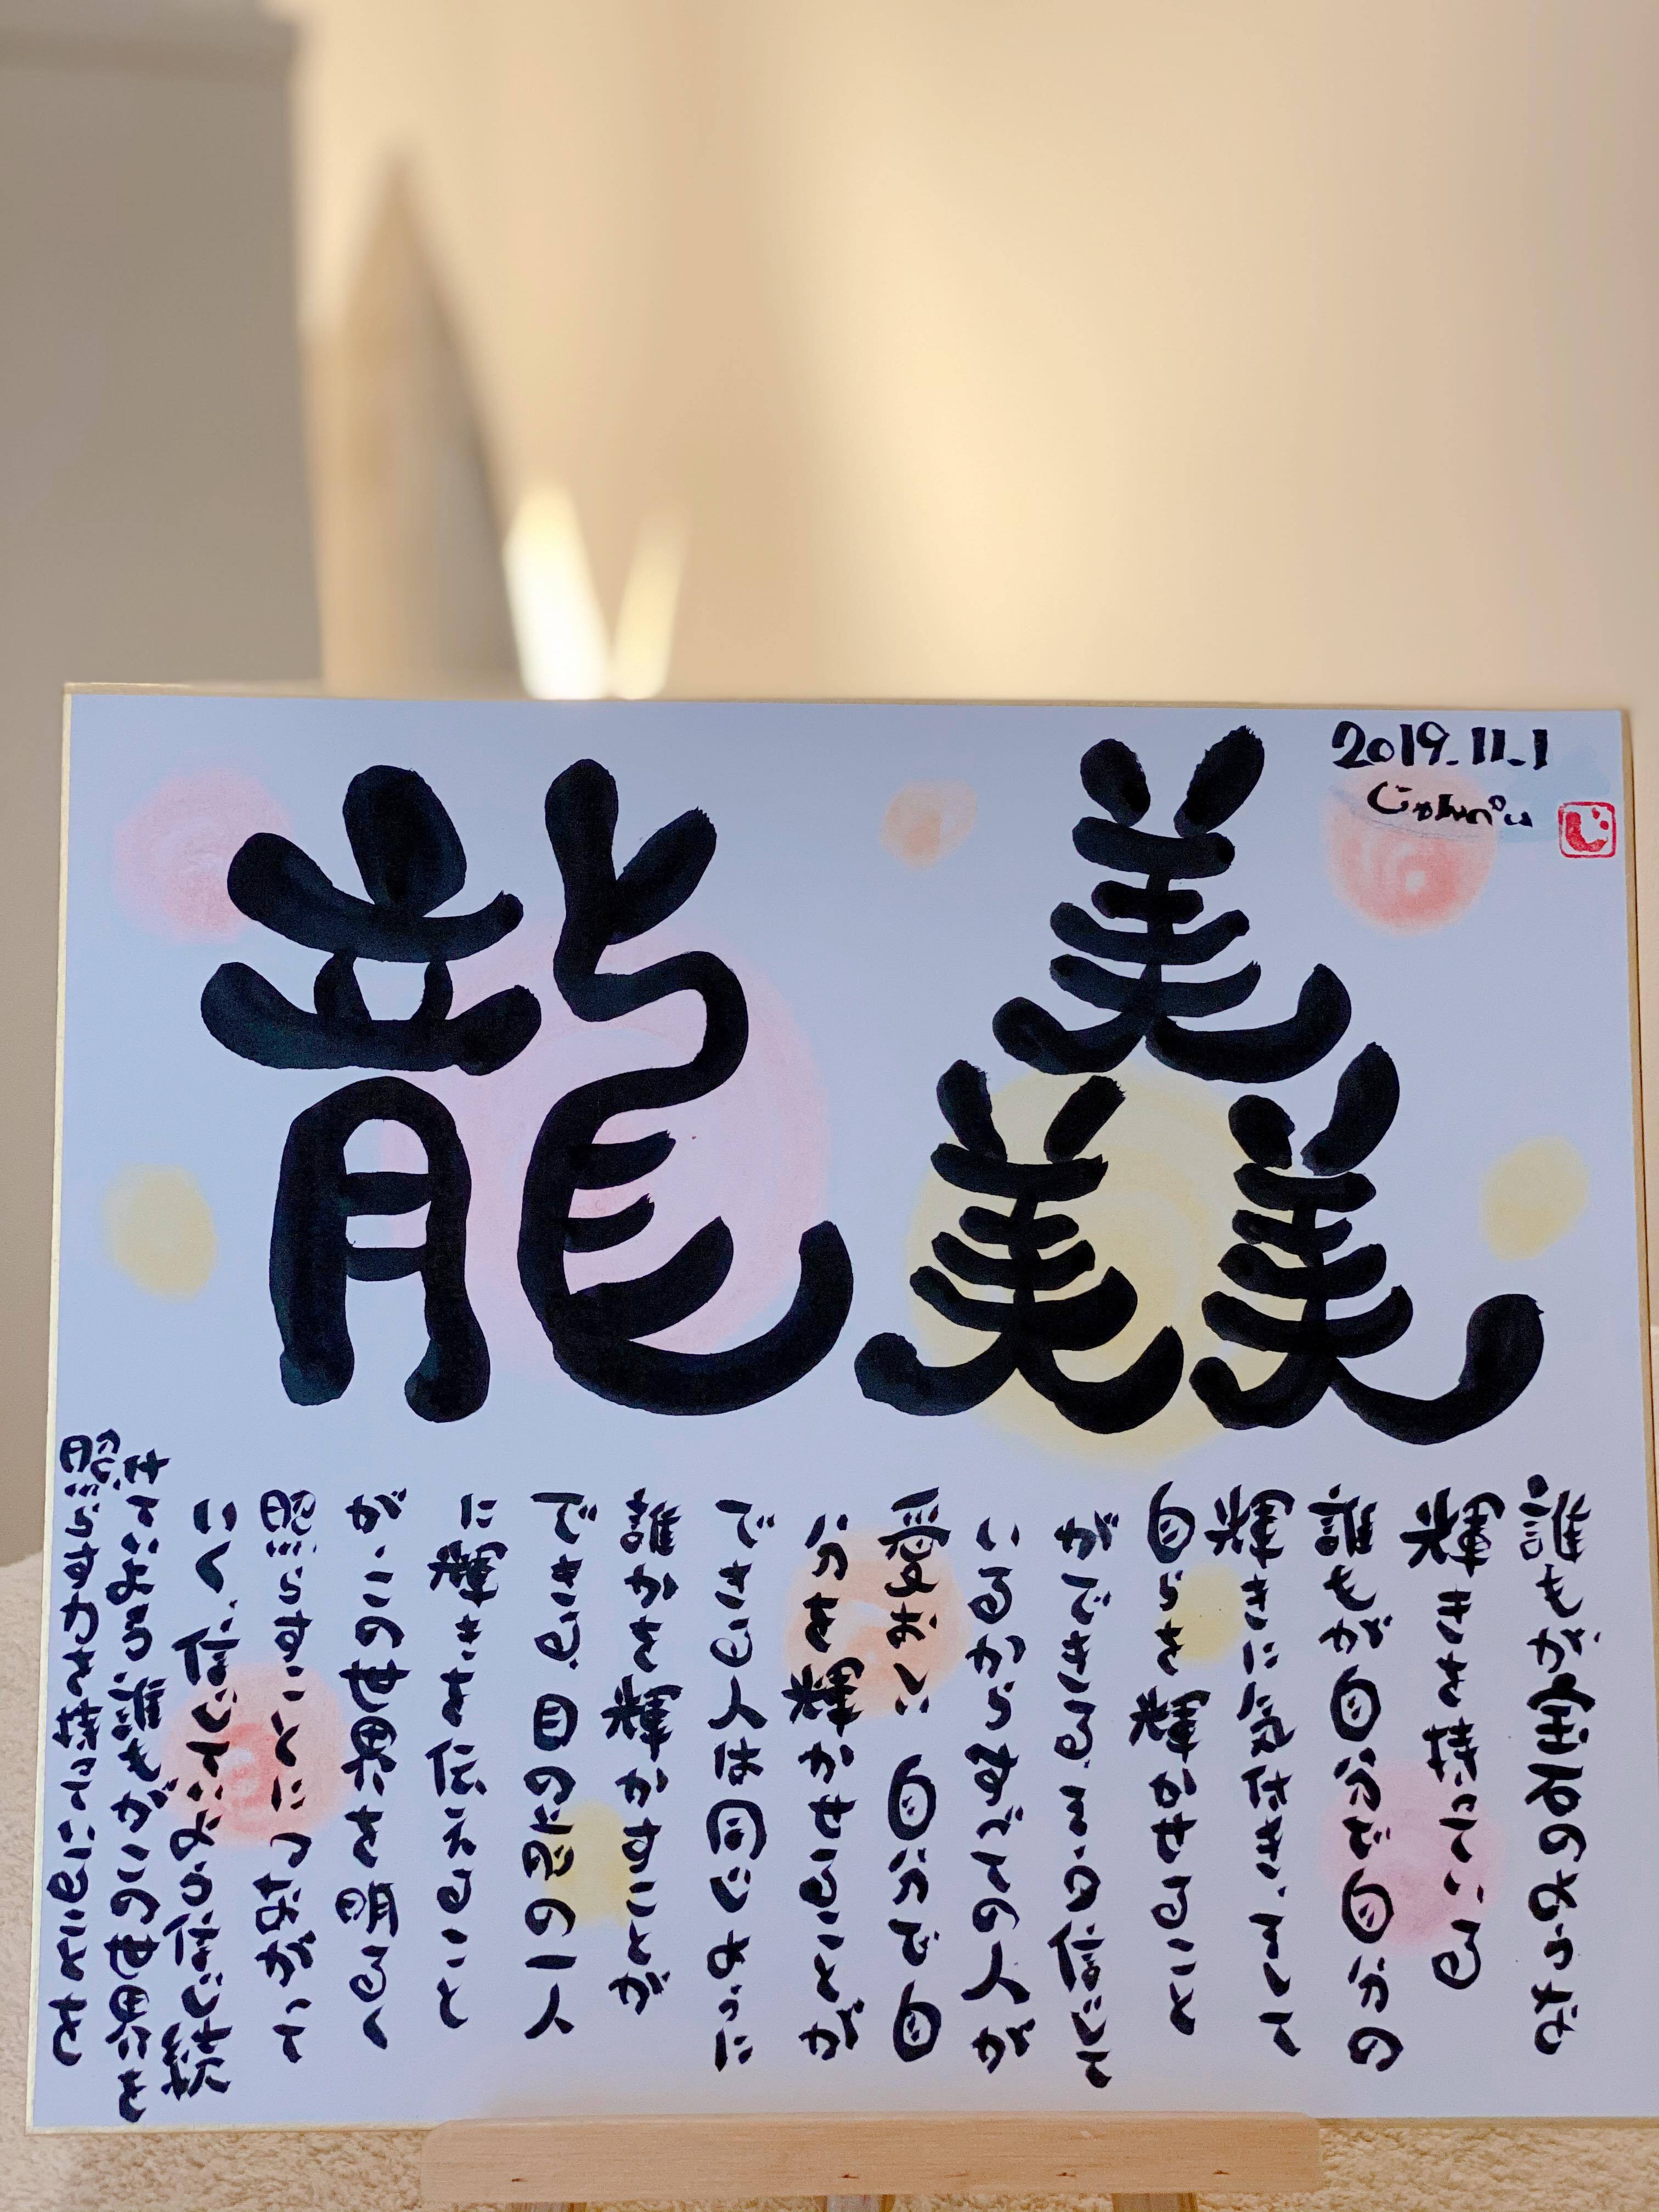 2019.11.1
じゅんぺい
じ
美美美
龍
誰もが宝石のような
輝きを持っている
誰もが自分で自分の
輝きに気付き、そして
自らを輝かせること
ができる。そう信じて
いるからすべての人が
愛おしい 自分で自
分を輝かせることが
できる人は同じように
誰かを輝かすことが
できる。目の前の一人
に輝きを伝えること
が、この世界を明るく
照らすことにつながって
いく、信じていよう信じ続
けていよう誰もがこの世界を
照らす力を持っていることを